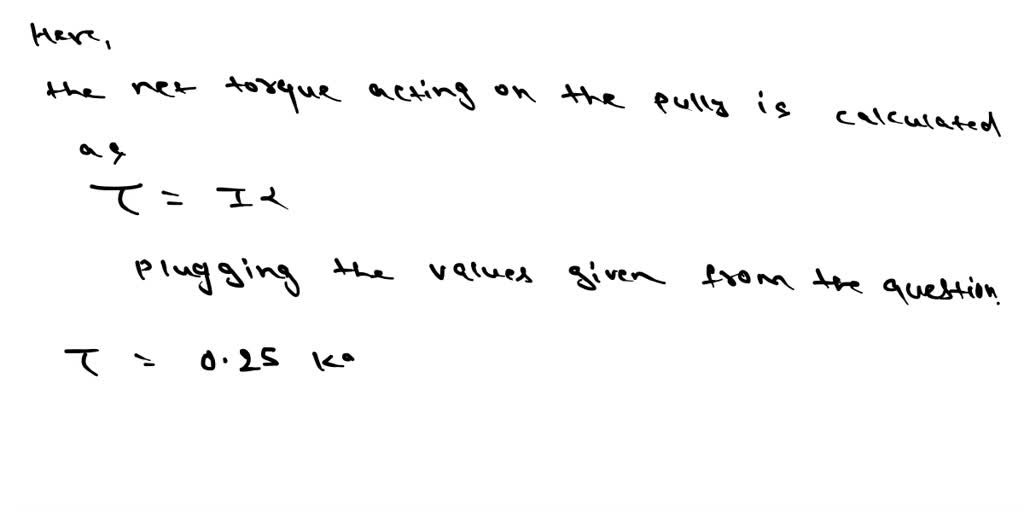 Here,
the net torque acting on the pully is calculated
as
τ = Iα
Plugging the values given from the question.
τ = 0.25 k